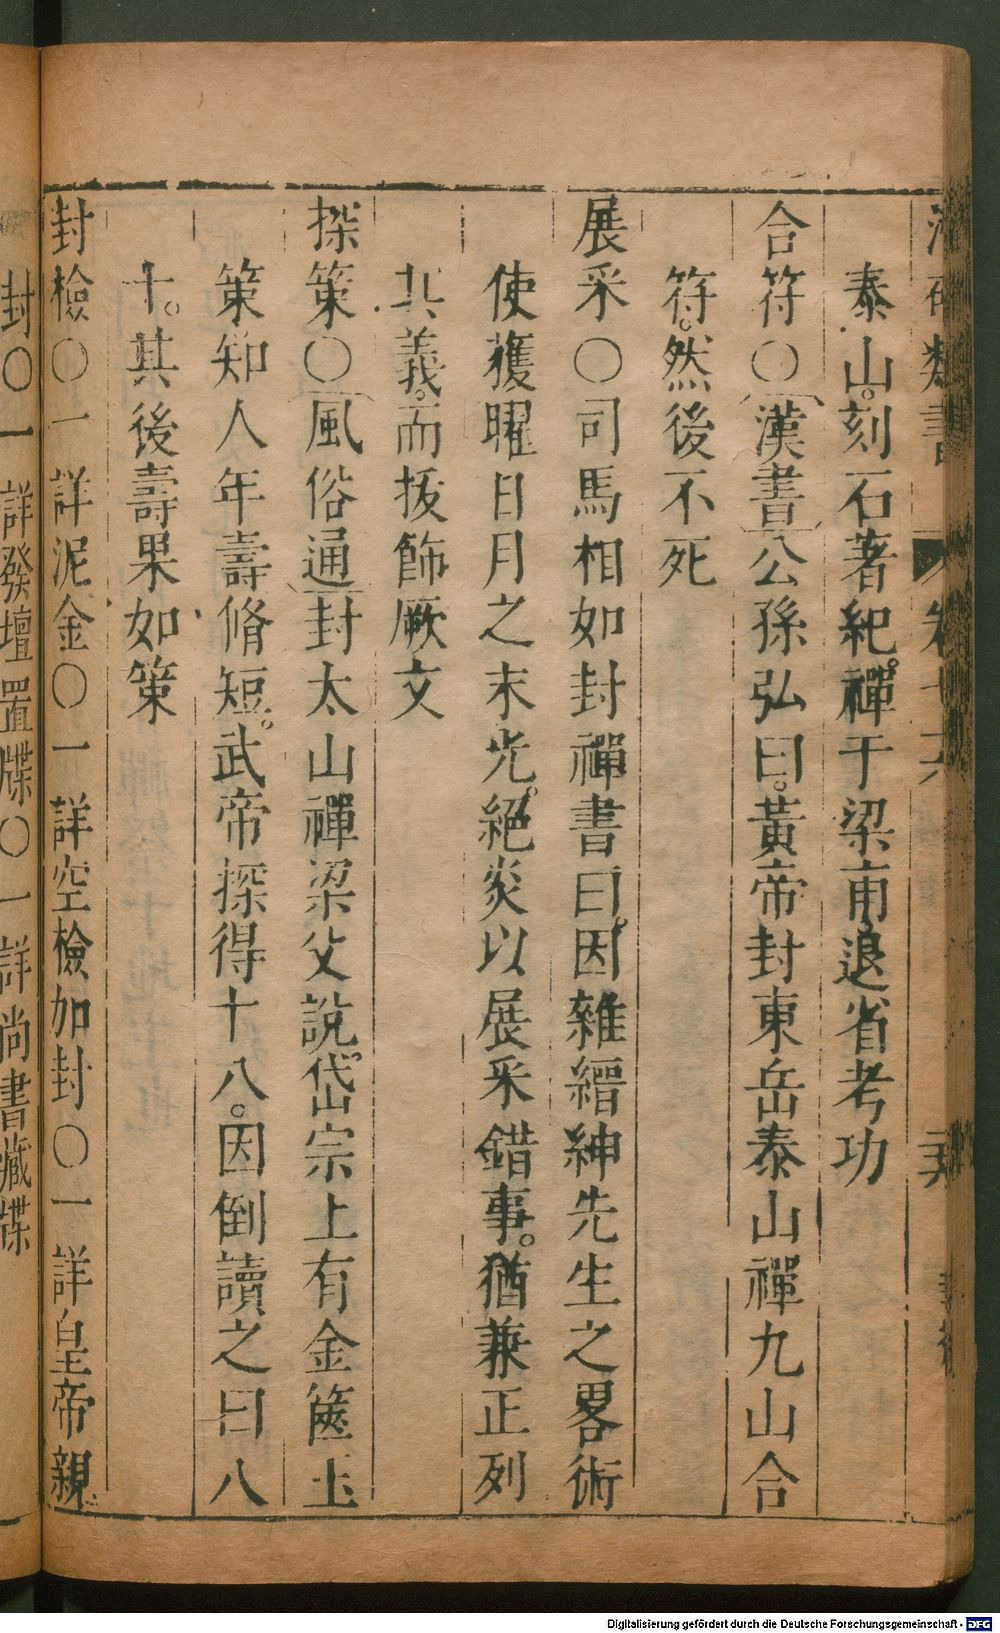 泰山。刻石著紀。禪于梁甫。退省考功
合符〇漢書公孫弘曰。黃帝封東岳泰山禪九山合
符。然後不死
展采〇司馬相如封禪書曰。因雜縉紳先生之畧術
使獲曜日月之末光。絕炎以展采錯事。猶兼正列
其義。而拔飾厥文
探策〇風俗通封太山禪梁父說。岱宗上有金篋玉
策知人年壽脩短。武帝探得十八。因倒讀之曰八
十。其後壽果如策
封檢〇一詳泥金〇一詳空檢加封〇一詳皇帝親
封〇一詳發壇置牒〇一詳尚書藏牒
Digitalisierung gefördert durch die Deutsche Forschungsgemeinschaft - DFG